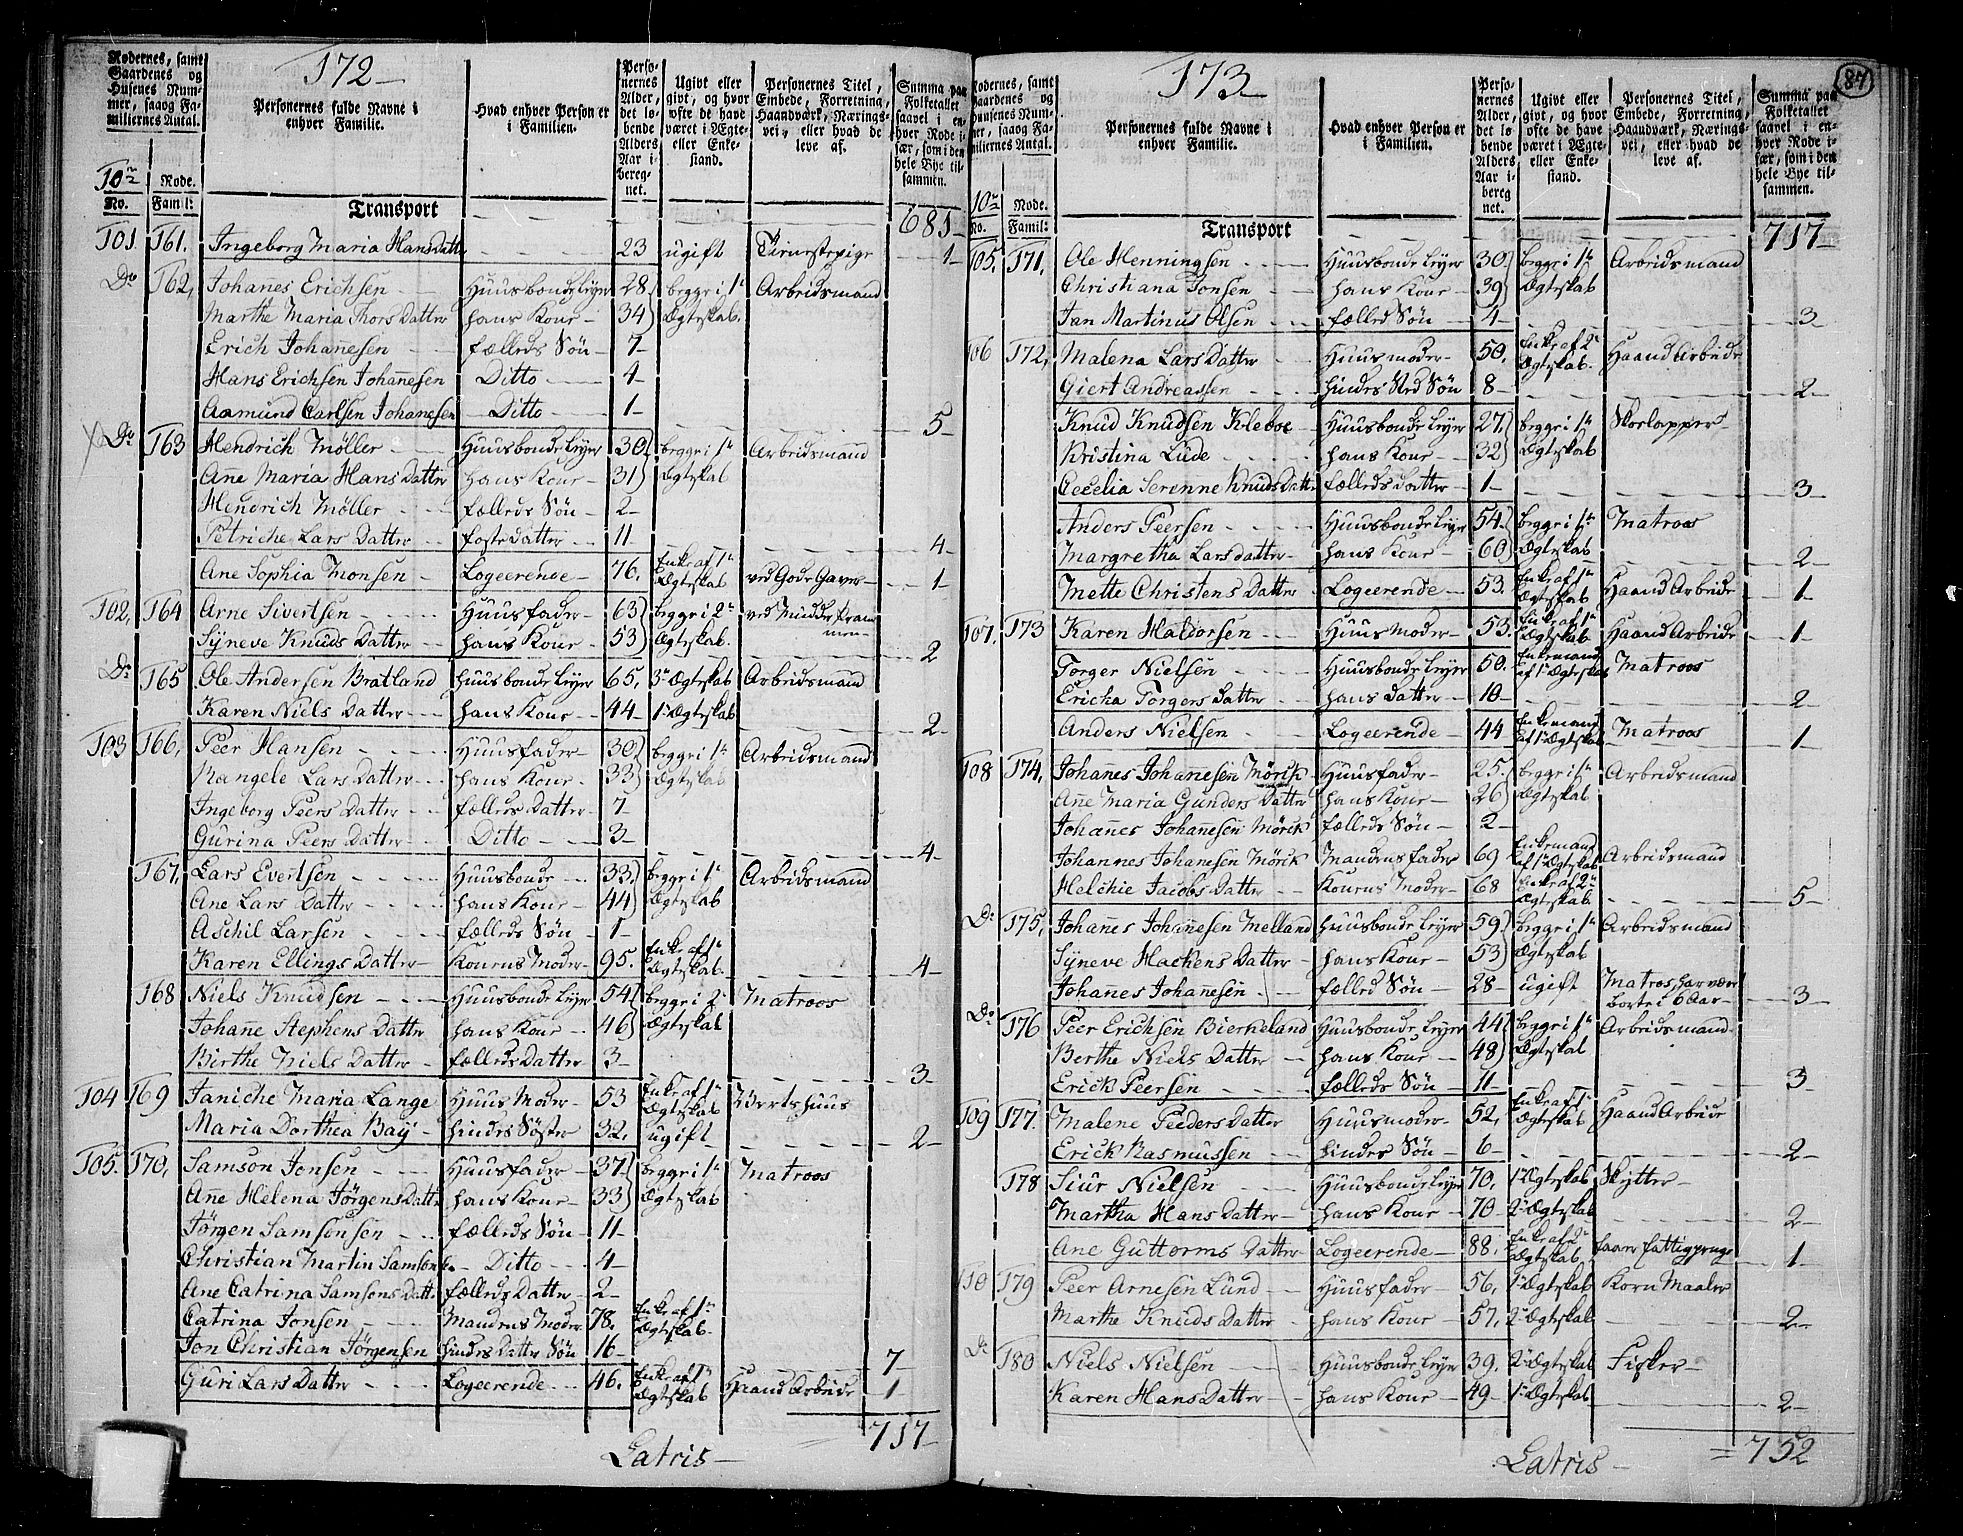 172
Rodernes, samt Gaardenes og Husenes Nummer, saaog Familiernes Antal.
Personernes fulde Navne i enhver Familie.
Hvad enhver Person er i Familien.
Personernes Alder, det løbende Alders Aar iberegnet.
Ugivt eller givt, og hvor ofte de have været i Ægte- eller Enkestand.
Personernes Titel, Embede, Forretning, Haandværk, Næringsvei, eller hvad de leve af.
Summa paa Folketallet saavel i enhver Rode især, som i den hele Bye tilsammen.
10de Rode.
No. Famil:
Transport - - - 685
101. 161. Ingeborg Maria Hansdatter - - 23 ugift Tienestepige 1
Do 162, Johanes Erichsen Huusbonde Leyer 28 begge i 1te Arbeidsmand
Marthe Maria Thors Datter hans Kone 34 Ægteskab.
Erich Johanesen fælleds Søn 7
Hans Erichsen Johanesen Ditto 4
Aamund Carlsen Johanesen Ditto 1 - 5
Do 163 Hendrich Møller Huusbonde Leyer 30 begge i 1te Arbeidsmand
Ane Maria Hans Datter hans Kone 31 Ægteskab
Hendrich Møller fælleds Søn 2
Petriche Lars Datter foste Datter 11 - 4
Ane Sophia Monsen Logeerende 76. Enke af 1te Ægteskab ved Gode Gaver 1
102, 164 Arne Sivertsen Huusfader 63 begge i 2de ved Mudder prammen
Syneve Knuds Datter hans Kone 53 Ægteskab. 2
Do 165 Ole Andersen Bratland huusbonde Leyer 65, 3de Ægteskab Arbeidsmand
Karen Niels Datter hans Kone 44 1te Ægteskab 2
103 166, Peer Hansen Huusfader 30 begge i 1te Arbeidsmand
Rangele Lars Datter hans Kone 33 Ægteskab
Ingeborg Peers Datter fælleds Datter 7
Gurina Peers Datter Ditto 3 - 4
167, Lars Evertsen Huusbonde 33. begge i 1te Arbeidsmand
Ane Lars Datter hans Kone 44 Ægteskab
Aschil Larsen fælleds Søn 1
Karen Ellings Datter Konens Moder 95. Enke af 1te Ægteskab 4
168 Niels Knudsen Huusbonde Leyer 54 begge i 2de Matroos
Johane Stephens Datter hans Kone 46 Ægteskab
Birthe Niels Datter fælleds Datter 3 - 3
104 169 Janiche Maria Lange Huus Moder 53 Enke af 1te Ægteskab Vertshuus
Maria Dorthea Baÿ hindes Søster 32. ugift 2
105. 170, Samson Jonsen Huusfader 37 begge i 1te Matroos
Ane Helena Jørgens Datter hans Kone 33 Ægteskab
Jørgen Samsonsen fælleds Søn 11
Christian Martin Samsonsen Ditto 4
Ane Catrina Samsons Datt: fælleds Datter 2
Catrina Jonsen Mandens Moder 78. Enke af 1te Ægteskab
Jon Christian Jørgensen hindes Datter Søn 16 - 7
Guri Lars Datter Logeerende 46. Enke af 1te Ægteskab Haand Arbeide 1
717
Latris
173
87
Rodernes, samt Gaardenes og Husenes Nummer, saaog Familiernes Antal.
Personernes fulde Navne i enhver Familie.
Hvad enhver Person er i Familien.
Personernes Alder, det løbende Alders Aar iberegnet.
Ugivt eller givt, og hvor ofte de have været i Ægte- eller Enkestand.
Personernes Titel, Embede, Forretning, Haandværk, Næringsvei, eller hvad de leve af.
Summa paa Folketallet saavel i enhver Rode især, som i den hele Bye tilsammen.
10de Rode.
No. Famil:
Transport - - - 717
105, 171, Ole Henningsen Huusbonde Leyer 30 begge i 1te Arbeidsmand
Christiana Jonsen hans Kone 39 Ægteskab
Jan Martinus Olsen fælleds Søn 4 - 3
106 172, Malena Lars Datter Huusmoder 50, Enke af 2de Ægteskab Haand Arbeide
Giert Andreassen hindes Sted Søn 8 - 2
Knud Knudsen Kleboe Huusbonde Leyer 27, begge i 1te Skoelapper
Kristina Lude hans Kone 32 Ægteskab
Cecelia Serenne Knuds Datter fælleds Datter 1 - 3
Anders Peersen Huusbonde Leyer 54. begge i 1te Matroos
Margretha Larsdatter hans Kone 60 Ægteskab 2
Mette Christens Datter Logeerende 53. Enke af 1te Ægteskab Haand Arbeide 1
107. 173 Karen Haldorsen Huus Moder 53. Enke af 1te Ægteskab Haand Arbeide 1
Torger Nielsen Huusbonde Leyer 50. Enkemand af 1te Ægteskab Matroos
Ericka Torgers Datter hans Datter 10 - 2
Anders Nielsen Logeerende 44 Enkemand af 1te Ægteskab Matroos 1
108 174, Johanes Johanesen Mörck Huusfader 25. begge i 1te Arbeidsmand
Ane Maria Gunders Datter hans Kone 26 Ægteskab
Johanes Johanesen Mörck fælleds Søn 2
Johannes Johanesen Mörck Mandens fader 69 Enkemand af 1te Ægteskab Arbeidsmand
Helchie Jacobs Datter Konens Moder 68 Enke af 2de Ægteskab 5
Do 175, Johanes Johanesen Melland huusbonde Leyer 59 begge i 1te Arbeidsmand
Syneve Hackens Datter hans Kone 53 Ægteskab
Johanes Johanesen fælleds Søn 28 ugift Matros, har været borte i 6 Aar 3
Do 176 Peer Erichsen Bierkeland Huusbonde Leyer 44 begge i 1te Arbeidsmand
Berthe Niels Datter hans Kone 48 Ægteskab
Erick Peersen fælleds Søn 11 - 3
109 177. Malene Peeders Datter Huusmoder 52, Enke af 1te Ægteskab Haand Arbeide
Erick Rasmussen hindes Søn 6 - 2
178 Siur Nielsen Huusbonde Leyer 70, 1te Ægteskab Skytter
Martha Hans Datter hans Kone 70 2de Ægteskab 2
Ane Guttorms Datter Logeerende 88. Enke af 2de Ægteskab faaer fattigpenge 1
110 179 Peer Arnesen Lund Huusfader 56, 1te Ægteskab Korn Maaler
Marthe Knuds Datter hans Kone 57, 2de Ægteskab 2
Do 180 Niels Nielsen Huusbonde Leyer 39. 2de Ægteskab Fisker
Karen Hans Datter hans Kone 49 1te Ægteskab 2
= 752
Latris